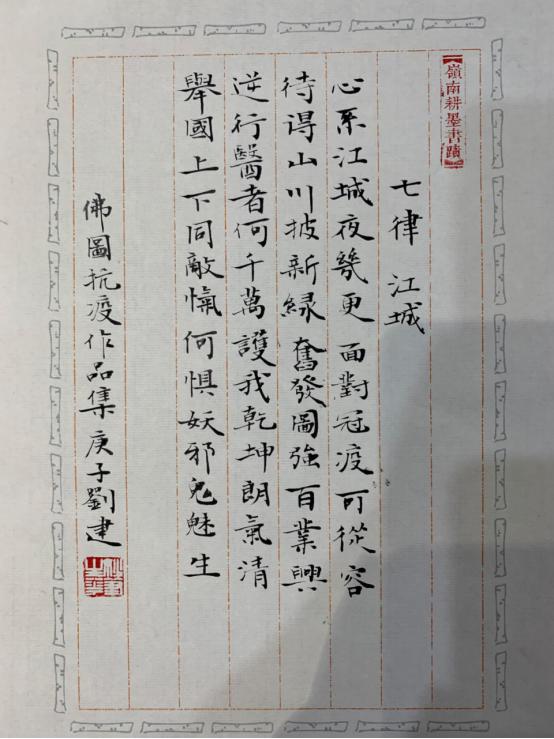 嶺南耕墨書蹟
七律 江城
心系江城夜幾更 面對冠疫可從容
待得山川披新緑 奮發圖強百業興
逆行醫者何千萬護我乾坤朗氣清
舉國上下同敵愾何惧妖邪鬼魅生
佛圖抗疫作品集庚子劉建